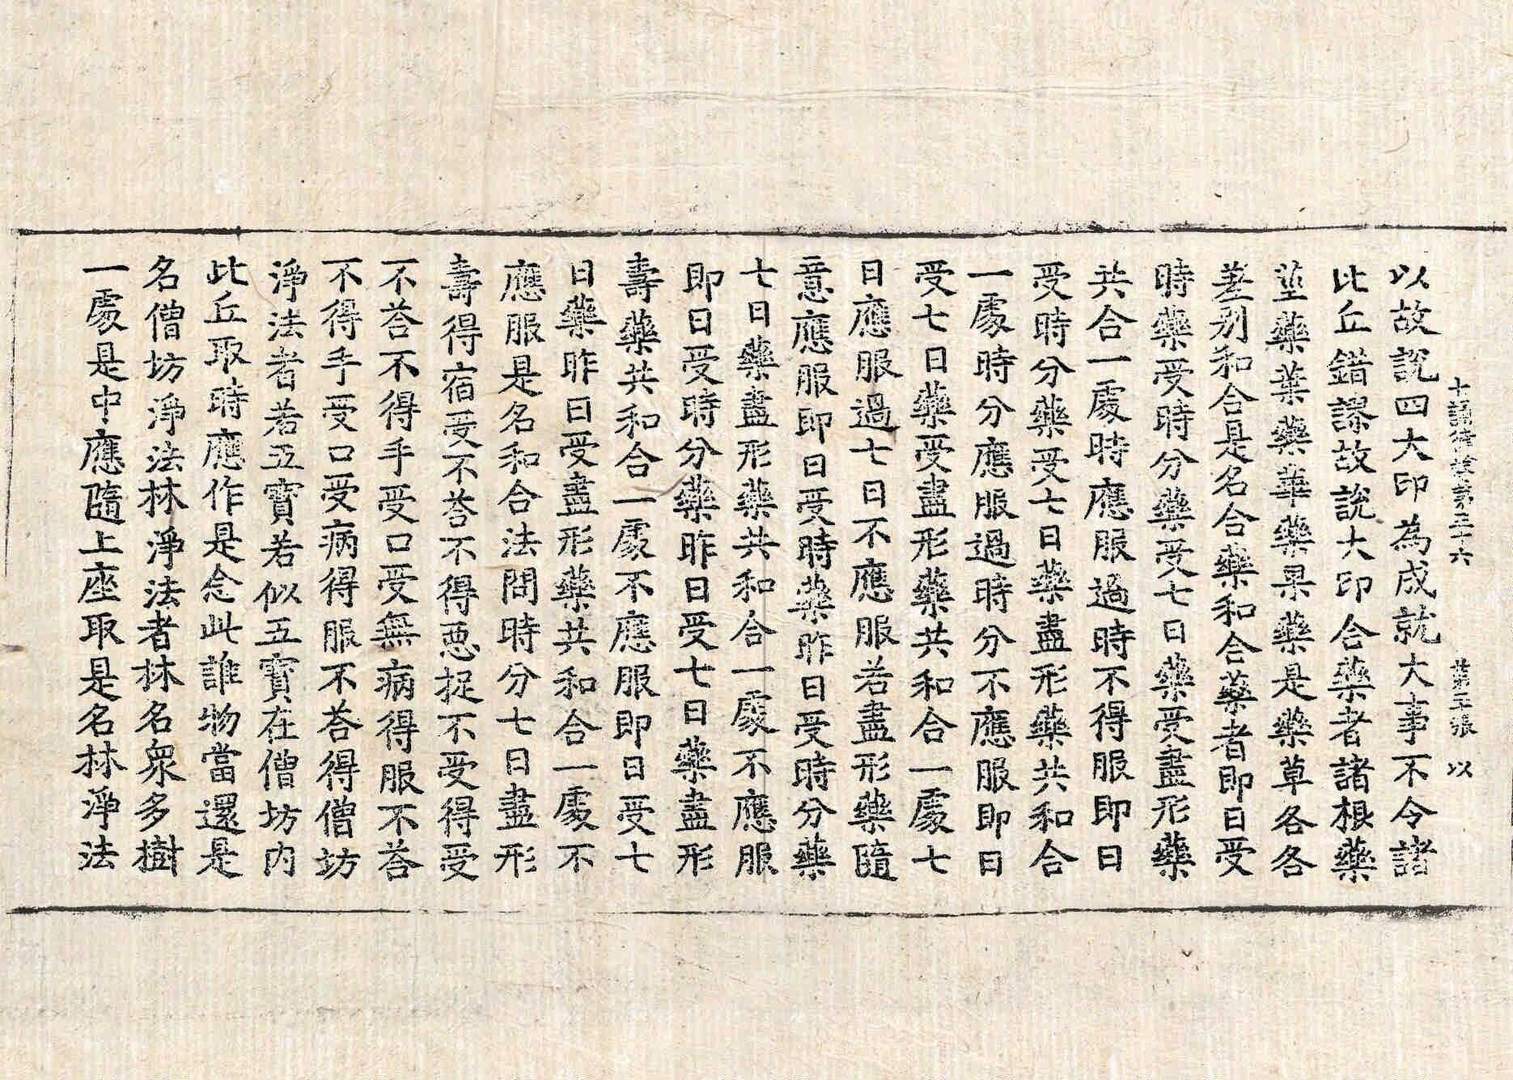 十誦律卷第五十六 第五張 以
以故說四大印為成就大事不令諸
比丘錯謬故說大印合藥者諸根藥
莖藥葉藥華藥果藥是藥草各各
差別和合是名合藥和合藥者即日受
時藥受時分藥受七日藥受盡形藥
共合一處時應服過時不得服即日
受時分藥受七日藥盡形藥共和合
一處時分應服過時分不應服即日
受七日藥受盡形藥共和合一處七
日應服過七日不應服若盡形藥隨
意應服即日受時藥昨日受時分藥
七日藥盡形藥共和合一處不應服
即日受時分藥昨日受七日藥盡形
壽藥共和合一處不應服即日受七
日藥昨日受盡形藥共和合一處不
應服是名和合法問時分七日盡形
壽得宿受不荅不得惡捉不受得受
不荅不得手受口受無病得服不荅
不得手受口受病得服不荅得僧坊
淨法者若五寶若似五寶在僧坊內
此丘取時應作是念此誰物當還是
名僧坊淨法林淨法者林名眾多樹
一處是中應隨上座取是名林淨法